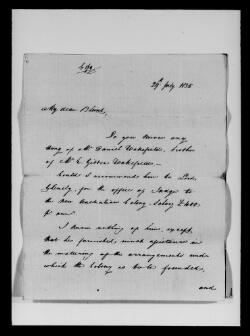 29th July 1835
My dear Blond,
Do you know any
thing of Mr Daniel Wakefield, brother
of Mr E. Gibbon Wakefield —
Could I recommend him to Lord
Glenelg for the office of Judge to
the new Australian Colony. Salary £400
pr ann.
I know nothing of him, except
that he furnished much assistance in
the maturing of the arrangements under
which the Colony is to be founded,
and